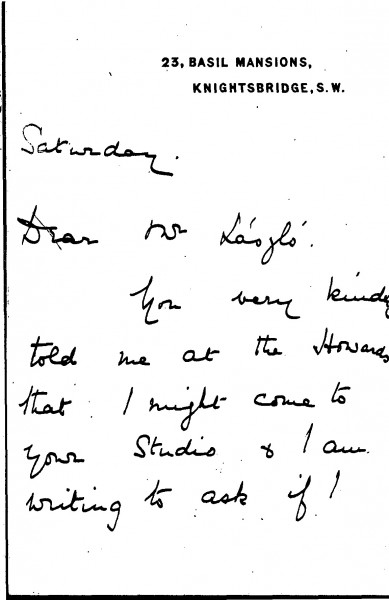 23, BASIL MANSIONS,
KNIGHTSBRIDGE, S.W.
Saturday.
Dear Mr László.
You very kindly
told me at the Howards
that I might come to
your Studio & I am
writing to ask if I